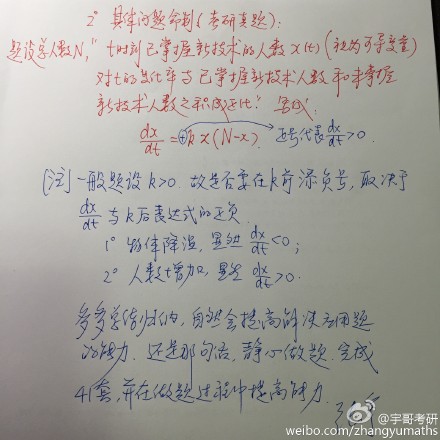 2° 具体问题命制(考研真题):
题设总人数N,"t时刻已掌握新技术的人数x(t)(视为可导变量)
对t的变化率与已掌握新技术人数和未掌握
新技术人数之积成正比." 写成:
dx/dt = ⊕k x(N-x). 正号代表 dx/dt >0.
[注] 一般题设 k>0. 故是否要在k前添负号, 取决于
dx/dt 与 k后表达式的正负.
1° 物体降温, 显然 dx/dt <0;
2° 人数t增加, 显然 dx/dt >0.
多多总结归纳, 自然会提高解决应用题
的能力. 还是那句话, 静心做题. 完成
41套, 并在做题过程中提高能力.
@宇哥考研
weibo.com/zhangyumaths